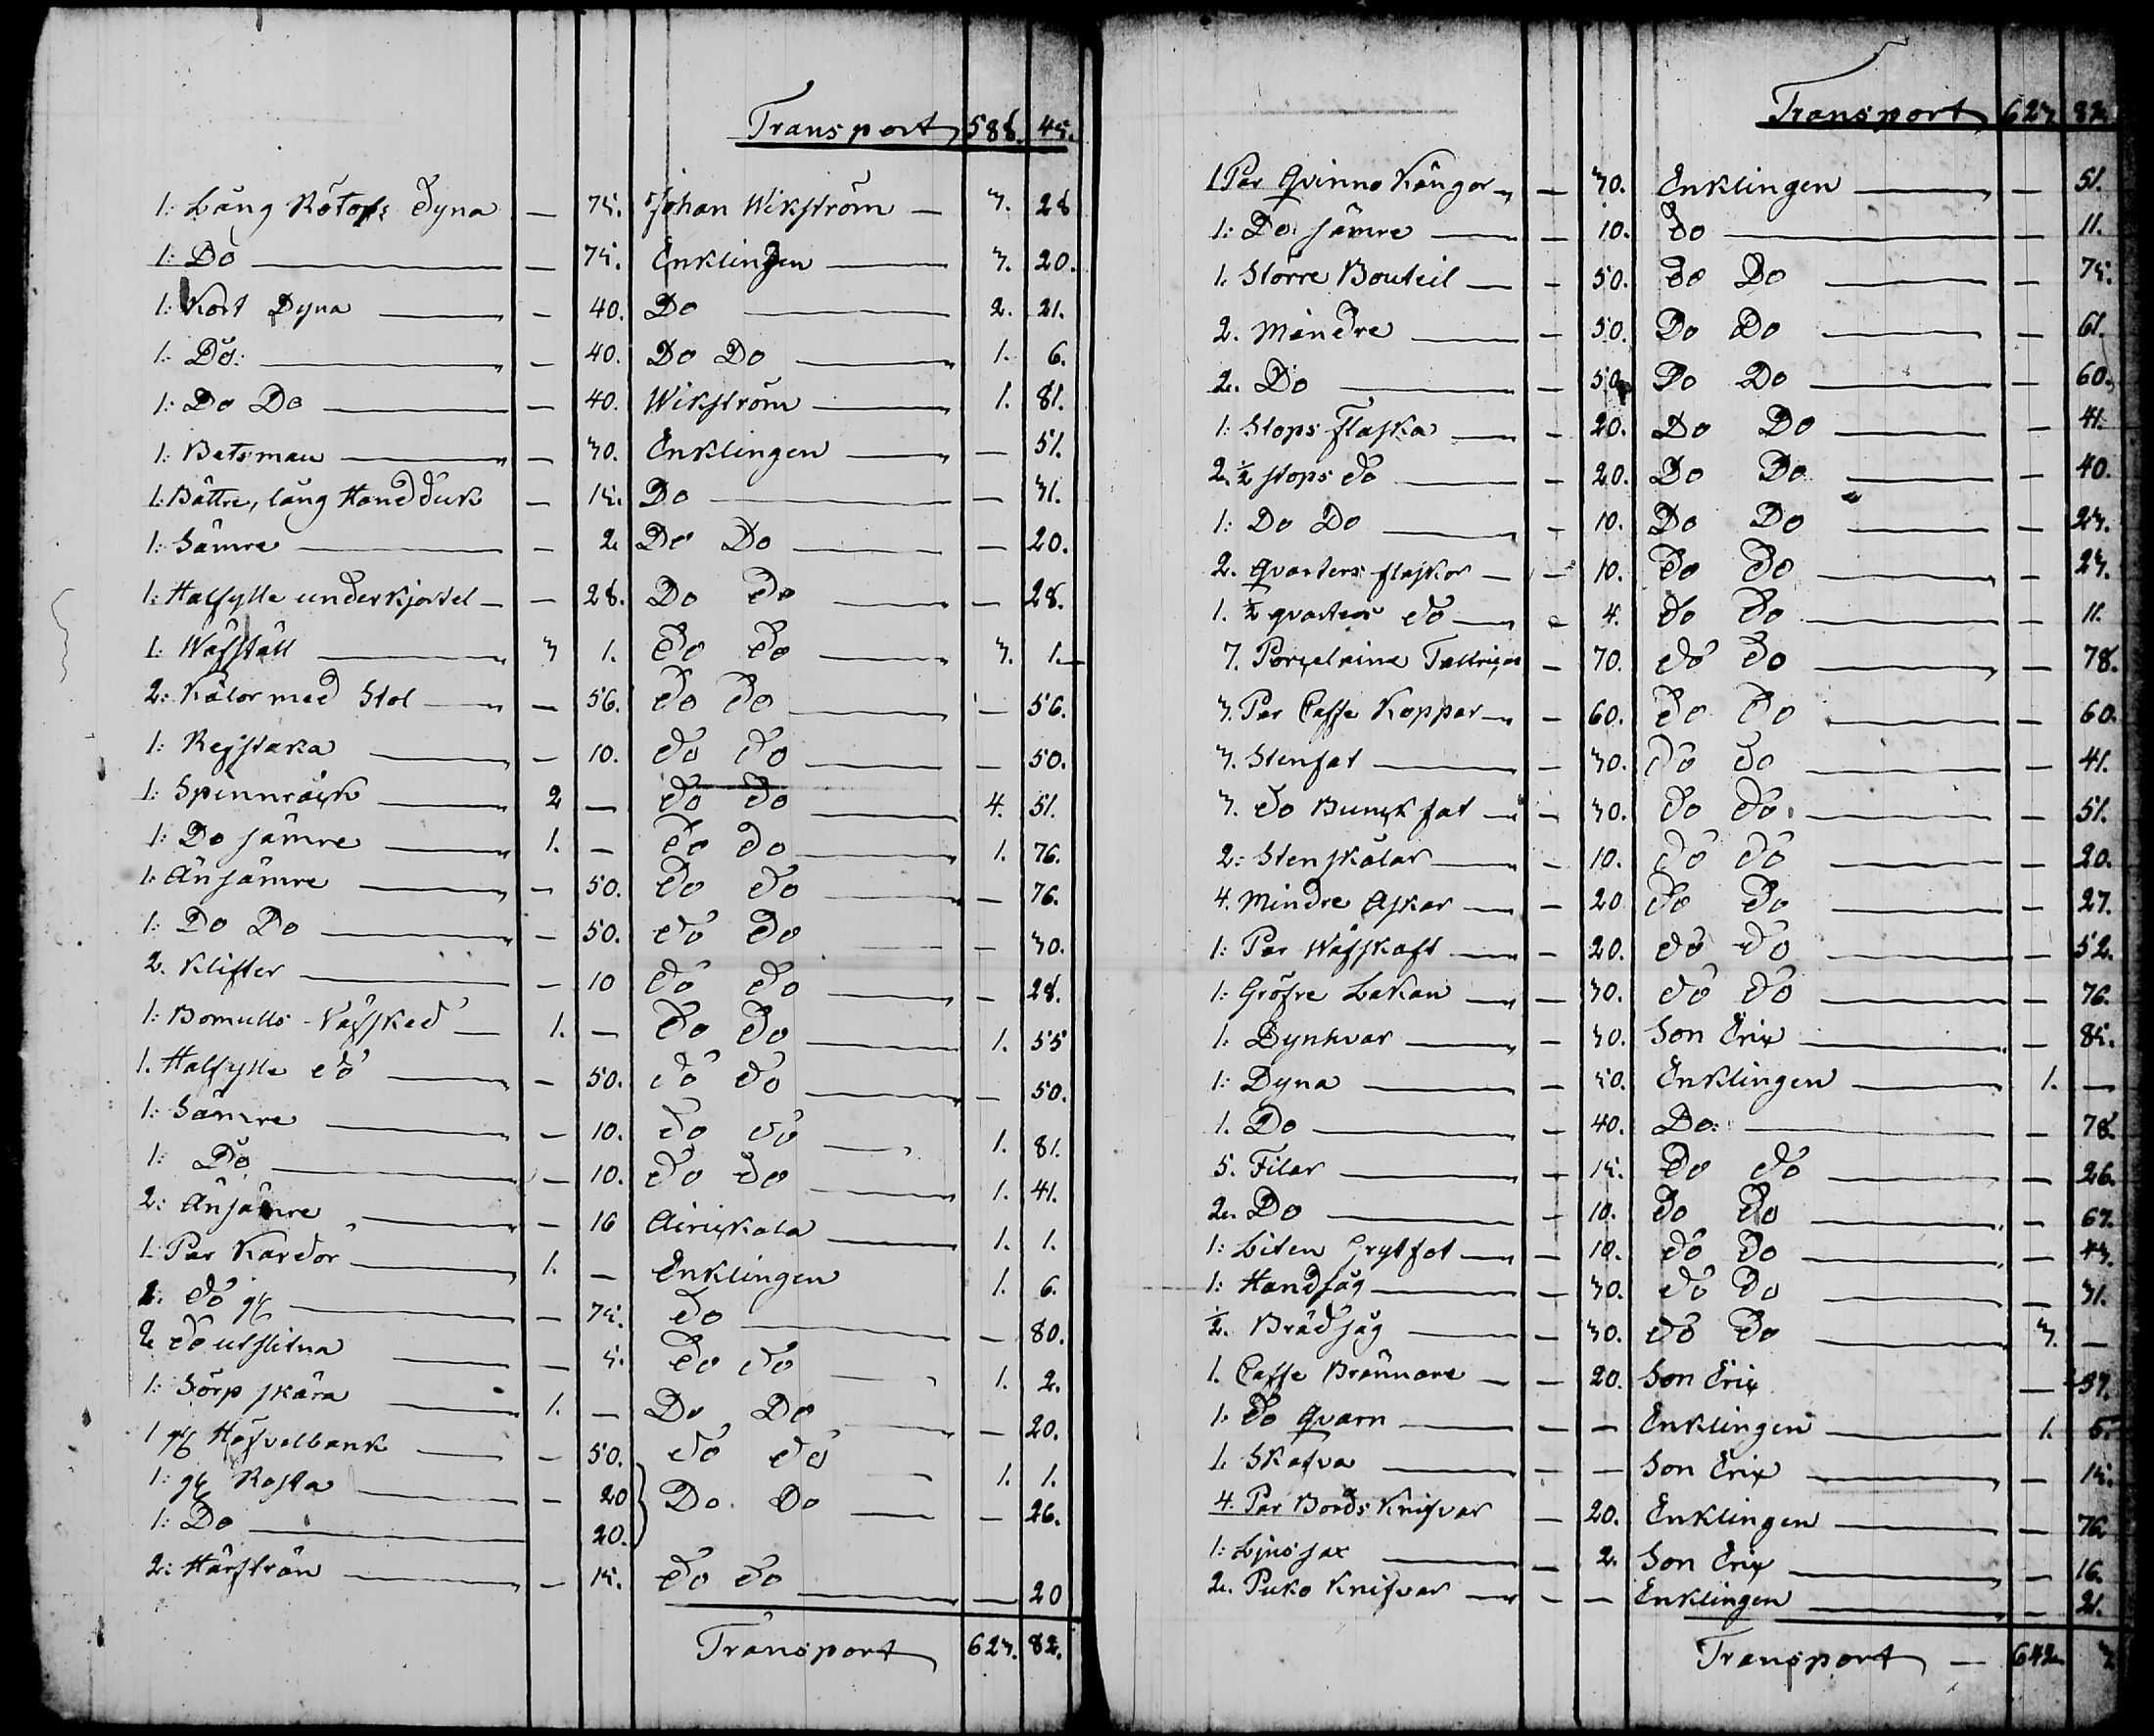 Transport 588. 45.
1: Lång Rötofs Dyna — 75. Johan Wikström — 3. 28
1: Do — 75. Enklingen — 3. 20.
1: Kort Dyna — 40. Do — 2. 21.
1: Do: — 40. Do Do — 1. 6.
1: Do Do — 40. Wikström — 1. 81.
1: Batsman — 30. Enklingen — 51.
1: Bättre, lång Handduk — 15. Do — 31.
1: Sämre — 2. Do Do — 20.
1: Halfylle underkjortel — 28. Do Do — 28.
1: Wäfställ — 3 1. Do Do — 3. 1.
2: Kälor med Stol — 56. Do Do — 56.
1: Rejstaka — 10. Do Do — 50.
1: Spinnråck — 2 — Do Do — 4. 51.
1: Do sämre — 1. — Do Do — 1. 76.
1: Änsämre — 50. Do Do — 76.
1: Do Do — 50. Do Do — 30.
2. Klifter — 10 Do Do — 28.
1: Bomulls Väfsked — 1. — Do Do — 1. 55
1. Halfylle do — 50. do Do — 50.
1: Sämre — 10. Do do — 1. 81.
1: Do — 10. Do Do — 1. 41.
2: Änsämre — 16 Airickala — 1. 1.
1: Par Kardor — 1. — Enklingen 1. 6.
2: do gl — 75. Do — 80.
2 do utslitna — 5. Do Do — 1. 2.
1: Sörpskära — 1. — Do Do — 20.
1 gl Höfvelbänk — 50. do do — 1. 1.
1: gl Kosta — 20 } Do Do — 26.
1: Do — 20.
2: Hårstrån — 15. Do Do — 20
Transport 623. 82.
Transport 623 82.
1 Par Qvinno Kängor — 30. Enklingen — 51.
1: Do sämre — 10. Do — 11.
1. Större Bouteil — 50. Do Do — 75.
2. Mindre — 50. Do Do — 61.
2. Do — 50 Do Do — 60.
1: Stops flaska — 20. Do Do — 41.
2. ½ stops do — 20. Do Do — 40.
1: Do Do — 10. Do Do — 23.
2. qvarters flaskor — 10. Do Do — 23.
1. ½ qvarters do — 4. do Do — 11.
7. Porçelaine Tallrickar — 70. do Do — 78.
3. Par Caffe Koppar — 60. Do Do — 60.
3. Stenfat — 30. Do Do — 41.
3. do Bunckfat — 30. Do Do — 51.
2: Stenskålar — 10. do do — 20.
4. Mindre Askar — 20 do Do — 27.
1: Par Wäfskaft — 20. do Do — 52.
1: Gröfre Lakan — 30. do do — 76.
1: Dynhvar — 30. Son Eric — 85.
1: Dyna — 50. Enklingen — 1. —
1. Do — 40. Do: — 78.
5. Filar — 15. Do do — 26.
2. Do — 10. Do Do — 67.
1: Liten Grytfot — 10. do Do — 43.
1: Handsåg — 30. do Do — 31.
½. Brädsåg — 30. do Do — 3. —
1. Caffe Brännare — 20. Son Eric — 37.
1. Do qvarn — — Enklingen — 1. 5.
1. Skafva — — Son Eric — 15.
4. Par Bords Knifvar — 20. Enklingen — 76
1: Ljussax — 2. Son Eric — 16.
2. Puko Knifvar — — Enklingen — 21.
Transport — 642.